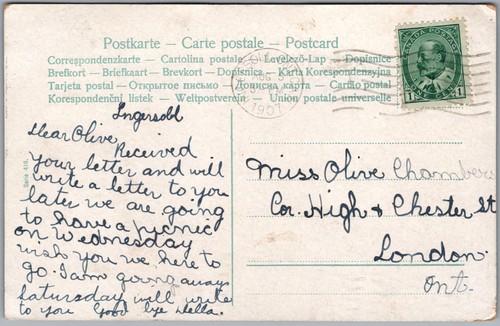 Postkarte – Carte postale – Postcard
Correspondenzkarte – Cartolina postale – Levelező-Lap – Dopisnice
Brefkort – Briefkaart – Brevkort – Dopisnica – Karta Korespondenzyjna
Tarjeta postal – Открытое письмо – Дописна карта – Cartão postal
Korespondenční lístek – Weltpostverein – Union postale universelle
CANADA POSTAGE
1 1
Ingersoll
Dear Olive
Received
your letter and will
write a letter to you
later we are going
to have a picnic
on Wednesday
wish you we here to
go. I am going away
Saturday will write
to you Good bye Della.
Miss Olive Chambers
Cor. High & Chester St
London
Ont.